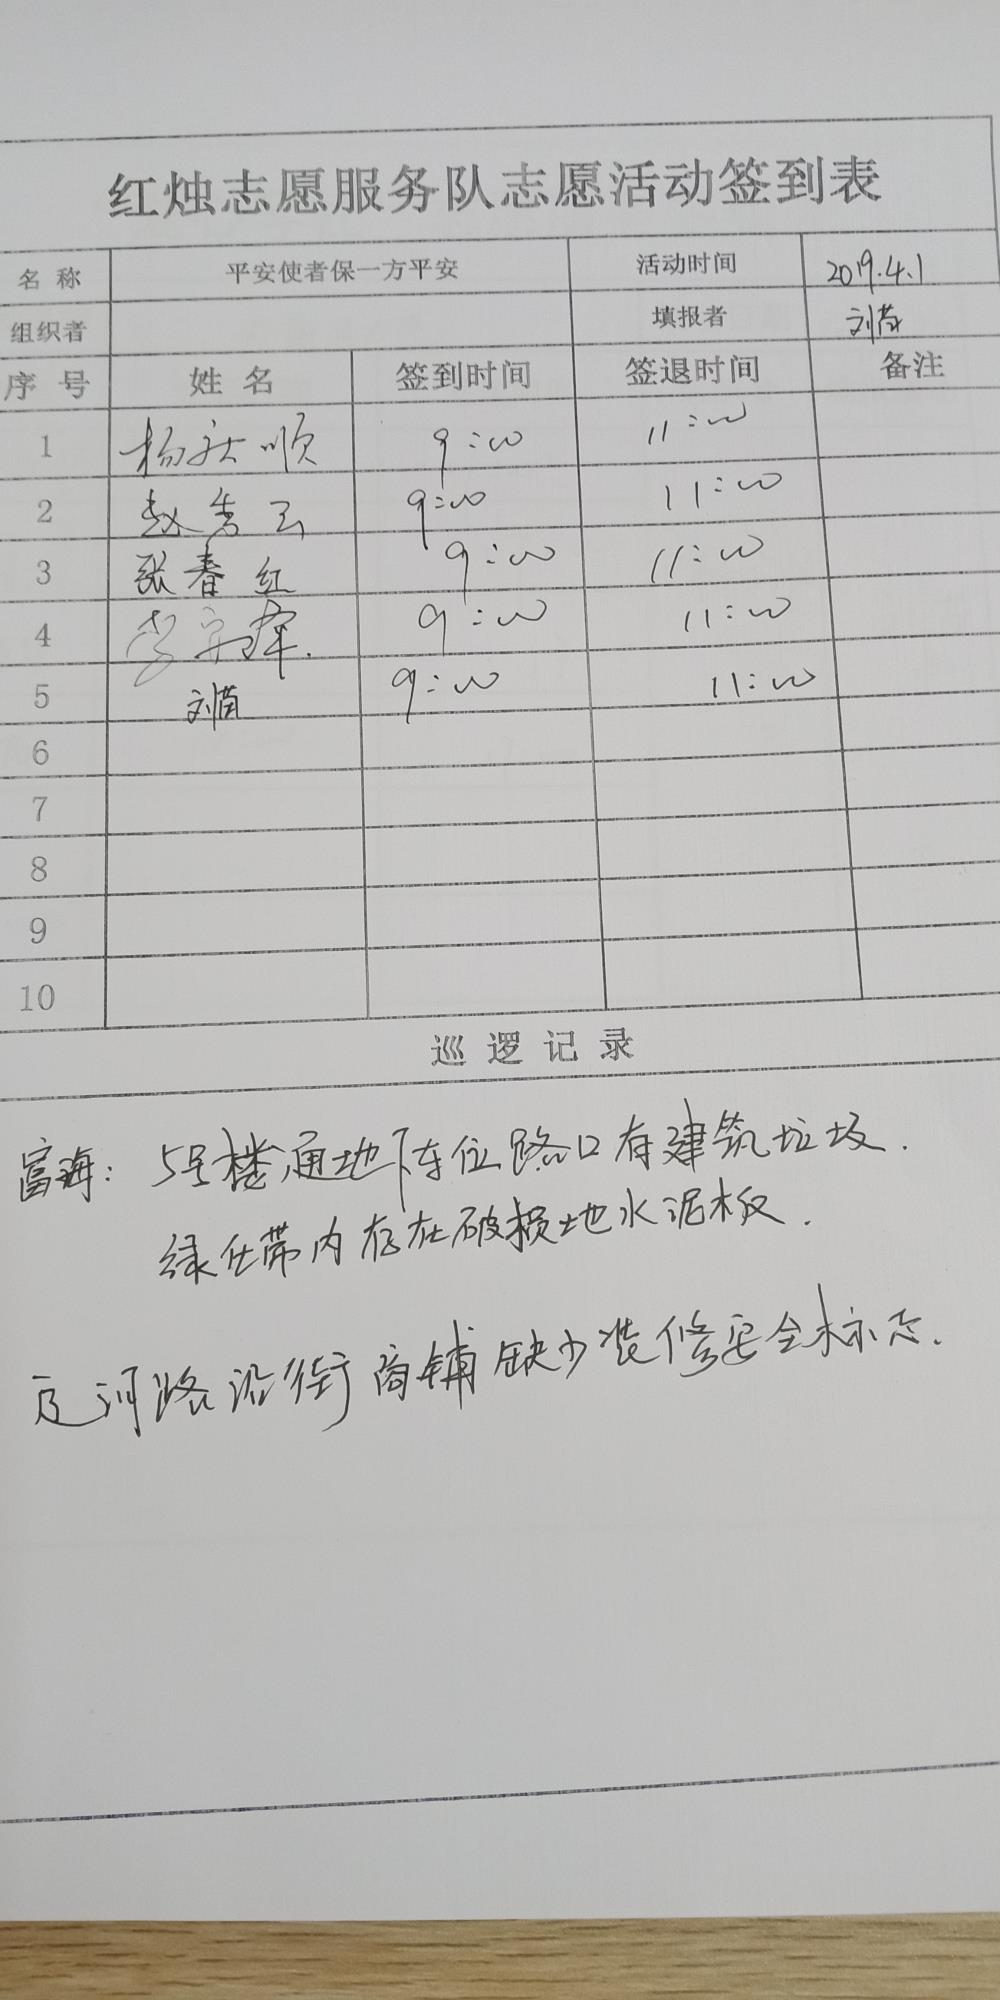 红烛志愿服务队志愿活动签到表
名 称 平安使者保一方平安 活动时间 2019.4.1
组织者 填报者 刘茵
序 号 姓 名 签到时间 签退时间 备注
1 杨顺 9:00 11:00
2 赵秀云 9:00 11:00
3 张春红 9:00 11:00
4 李 9:00 11:00
5 刘茵 9:00 11:00
6
7
8
9
10
巡 逻 记 录
富海: 5号楼通地下车位路口有建筑垃圾.
绿化带内存在破损地水泥板.
河路沿街商铺缺少装修安全标志.